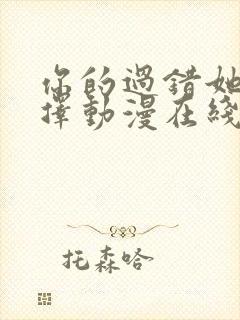 你的過錯她
擇動漫在綫
托森哈